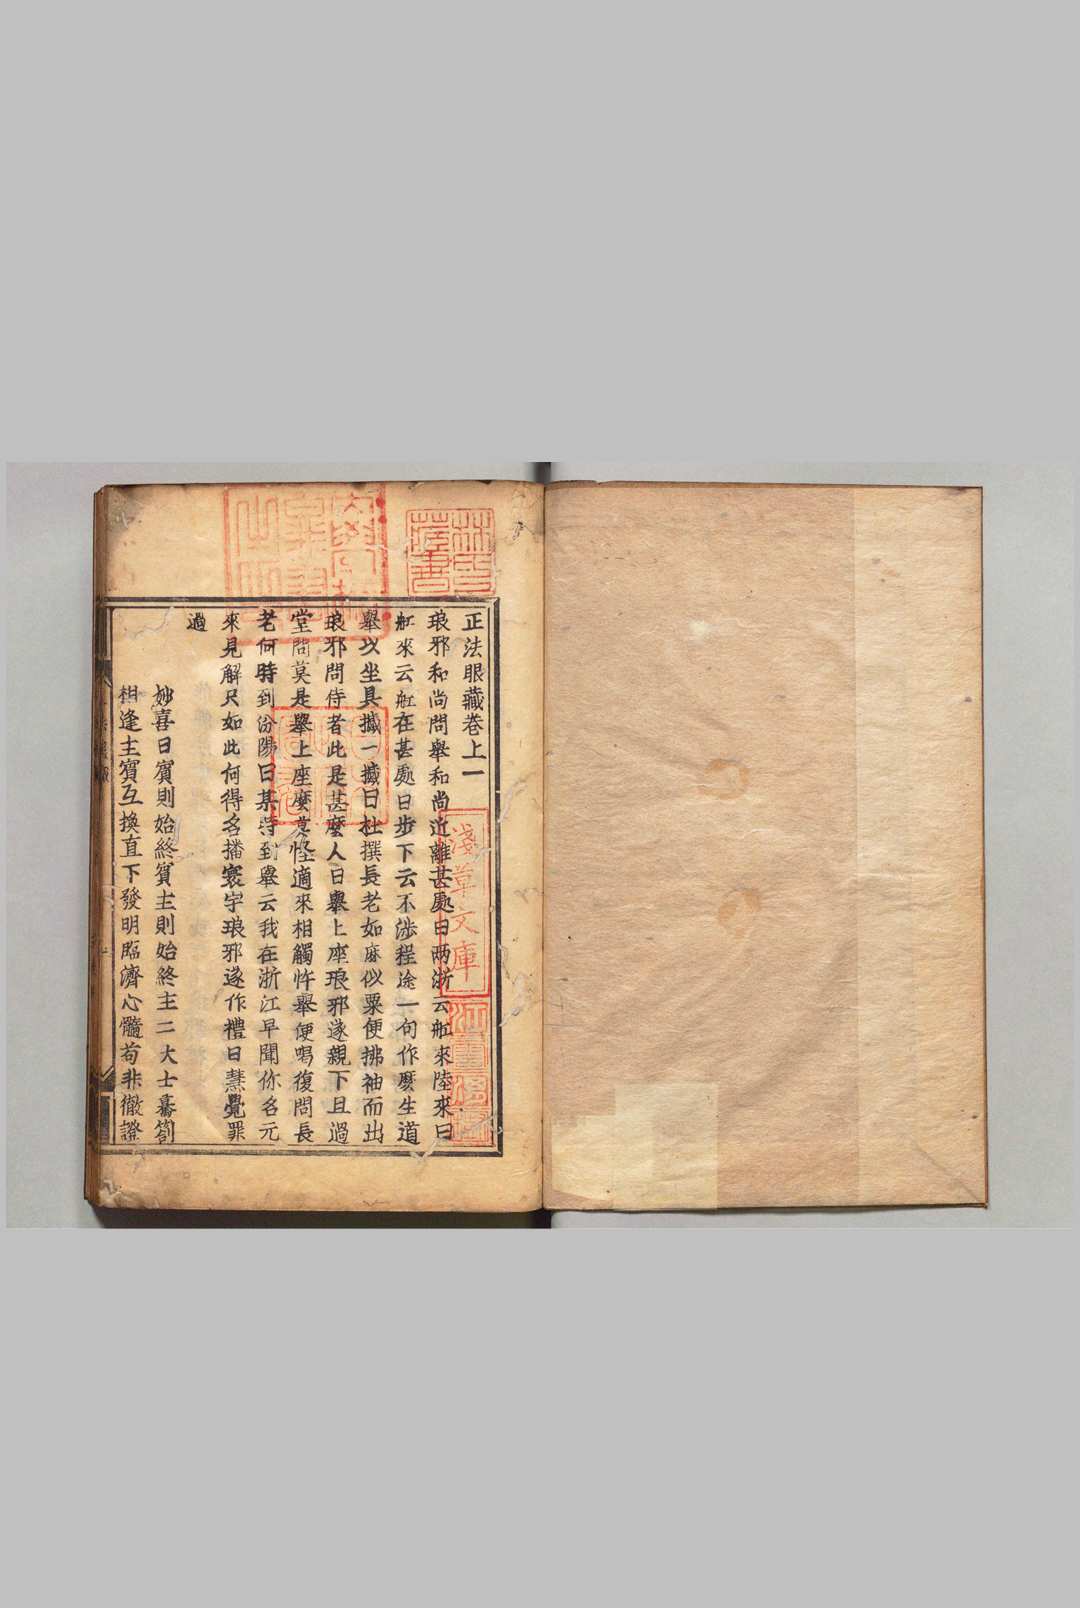 正法眼藏卷上一
琅邪和尚問舉和尚近離甚處曰两浙云舡來陸來曰
舡來云舡在甚處曰步下云不涉程途一句作麽生道
舉以坐具摵一摵曰杜撰長老如麻似粟便拂袖而出
琅邪問侍者此是甚麽人曰舉上座琅邪遂親下旦過
堂問莫是舉上座麽莫怪適來相觸忤舉便喝復問長
老何時到汾陽曰某時到舉云我在浙江早聞你名元
來見解只如此何得名播寰宇琅邪遂作禮曰慧覺罪
過
妙喜曰賔則始終賔主則始終主二大士驀劄
相逢主賔互換直下發明臨濟心髓苟非徹證
淺草文庫
林氏
藏書